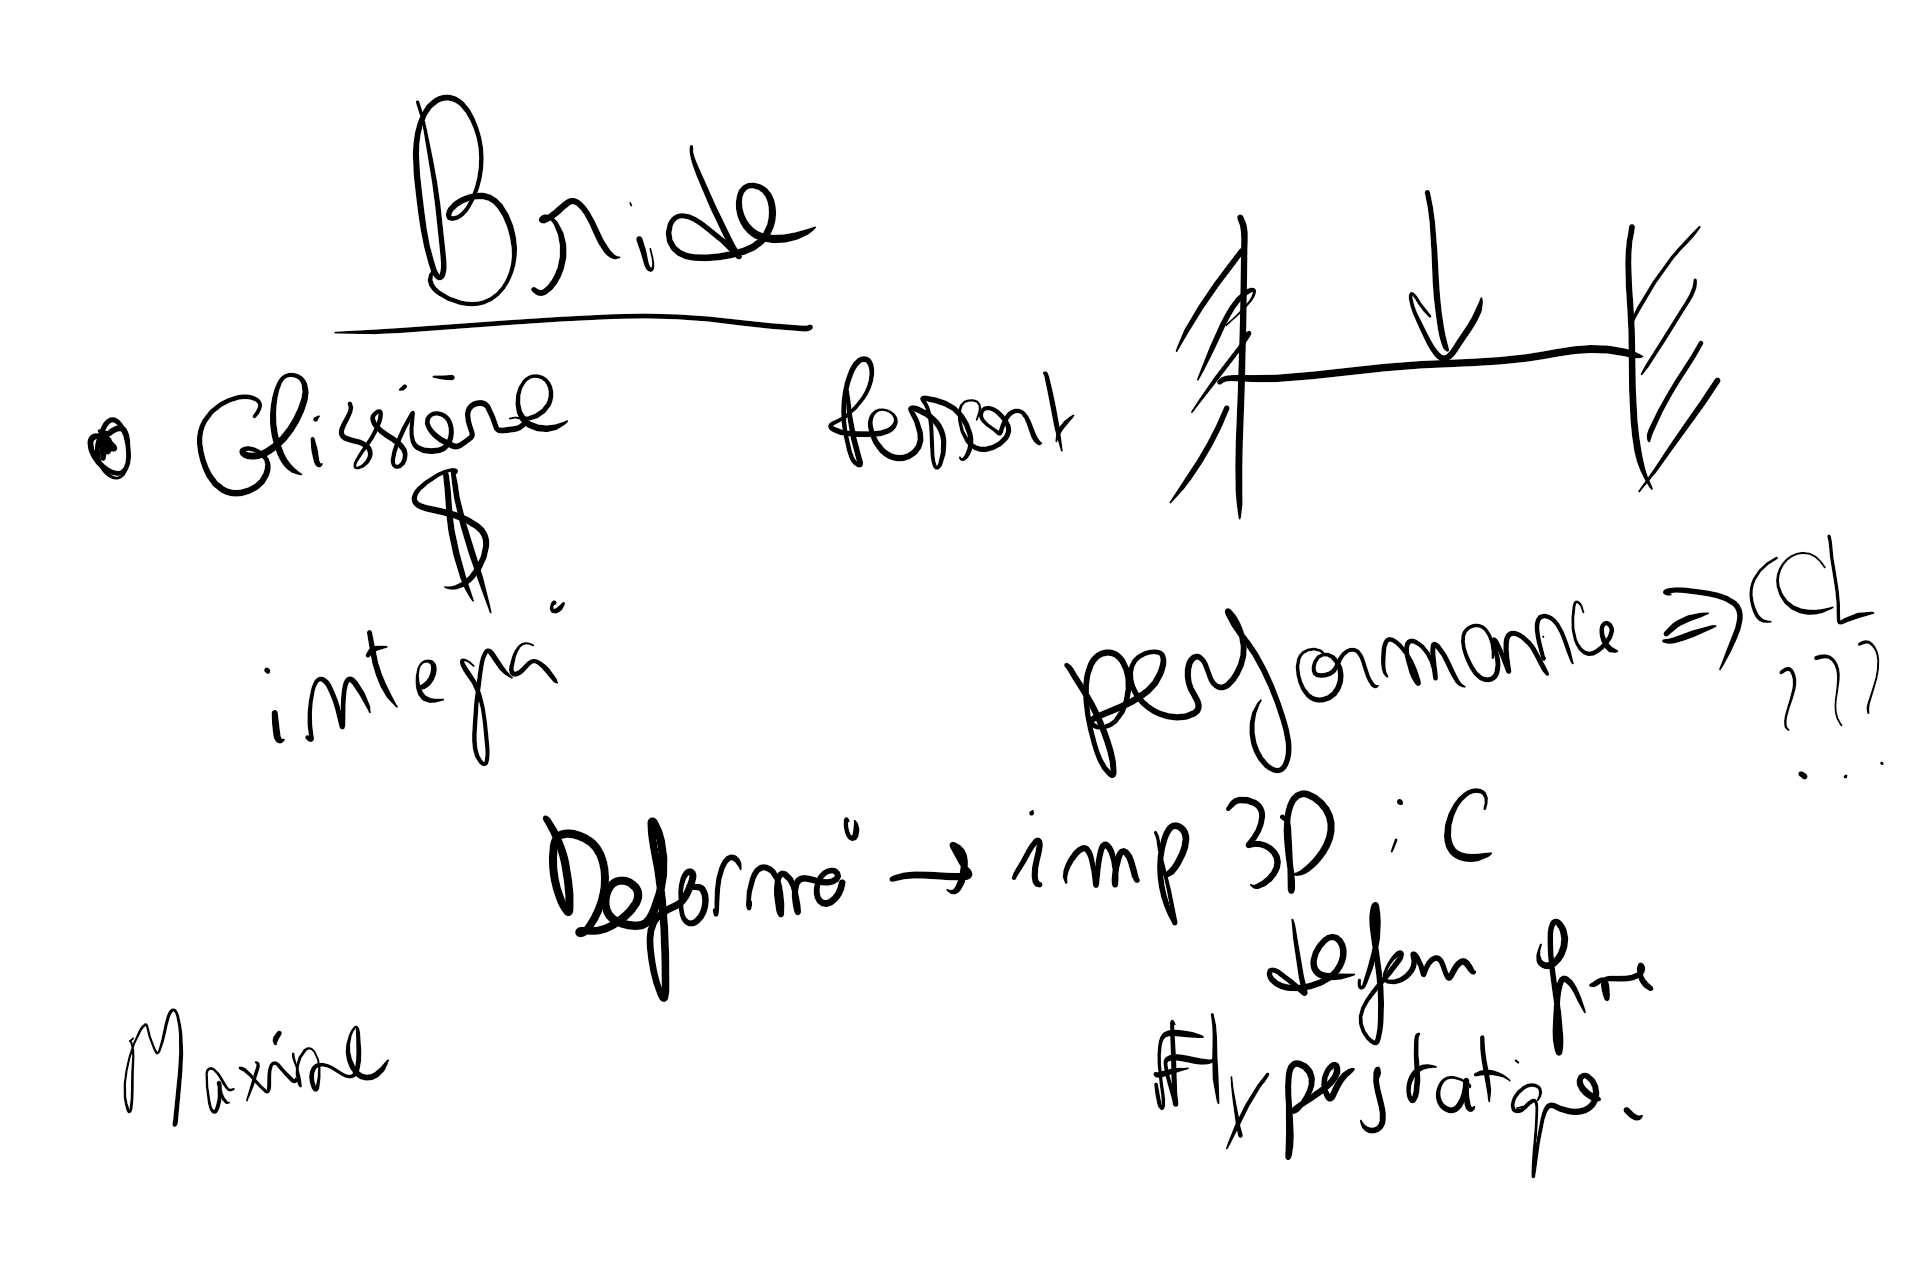 Bride
Glissière
$
integrᵒ
performance => CCL
???
Deformᵒ → imp 3D : C
deform
Hyperstatique.
Maxime